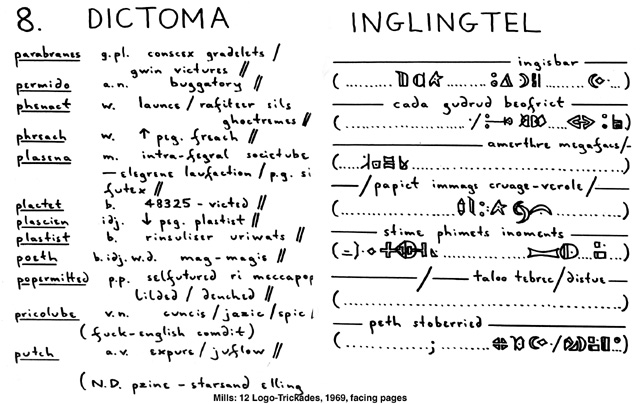 8. DICTOMA
parabranes g.pl. conscex gradelets /
gwin victures //
permido a.n. buggatory //
phenact w. launce / rafiteer sils
ghoctremes //
phreach w. ↑ peg. freach //
plasena m. intra-fegral societube
— elegrene laufaction / p.g. si
futex //
plactet b. 48325 - victed //
plascien idj. ↓ peg. plastist //
plastist b. rinsuliser uriwats //
poeth b.idj.w.d. mag-magis //
popermitted p.p. selfutured ri meccapop
lilded / denched //
pricolube v.n. cuncis / jazic / epic /
(fuck-english comdit)
putch a.v. expure / juflow //
(N.D. pzine - starsand elling
INGLINGTEL
ingisbar
cada gudrud beofrict
amerthre megafacs/-
/papict immags cruage-verole/
stime phimets inoments
/ taloo tebrec/distue
peth stoberried
Mills: 12 Logo-Trickades, 1969, facing pages